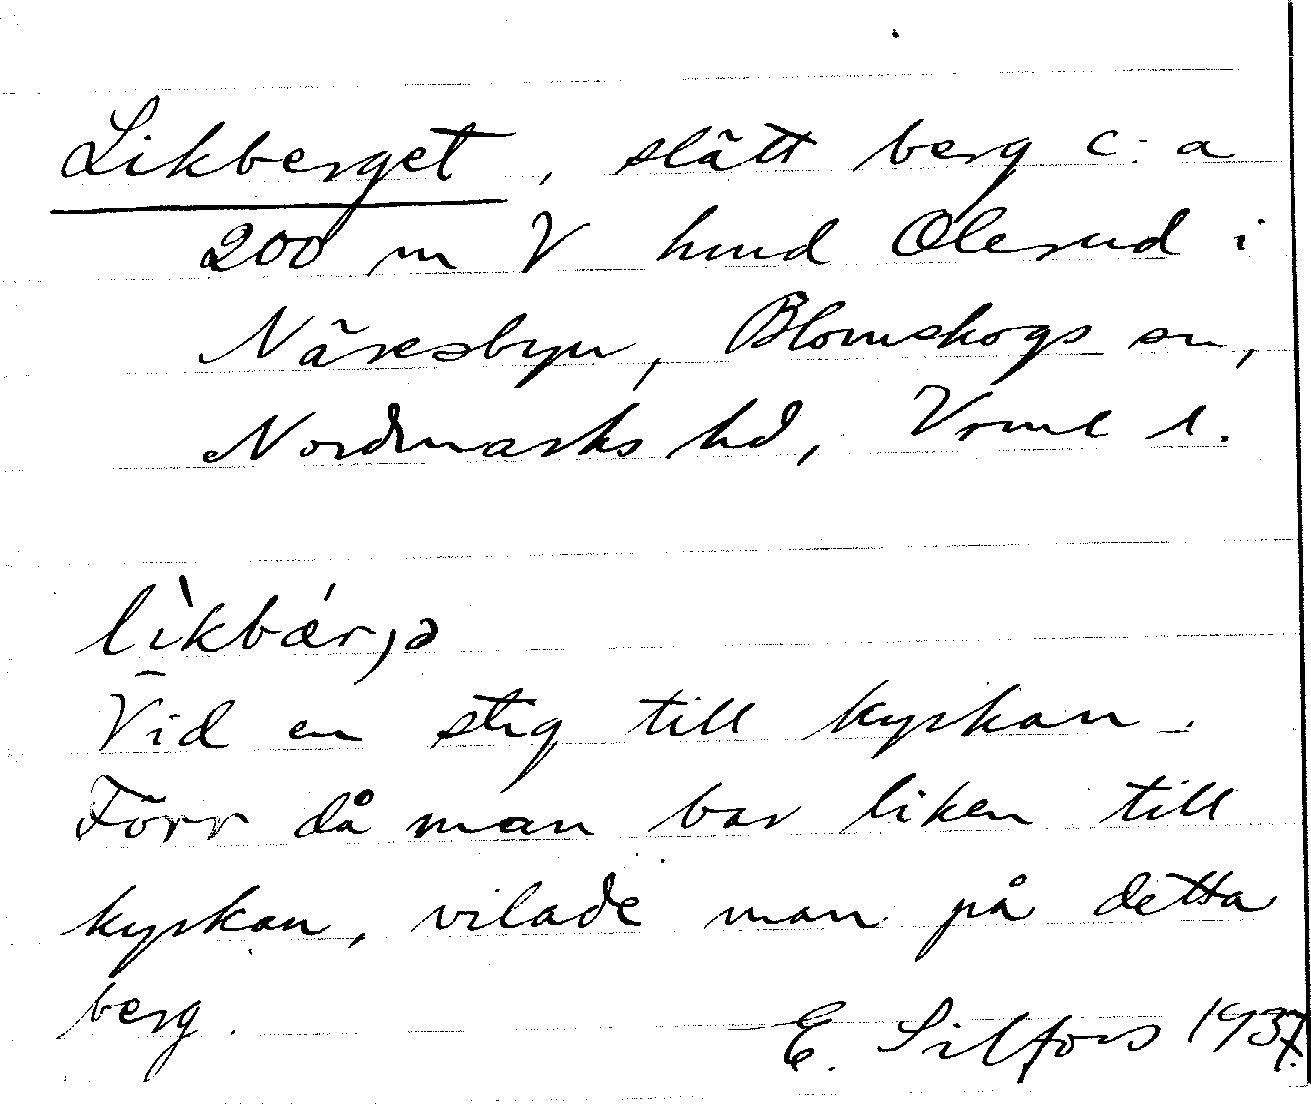 Likberget, slätt berg c:a
200 m V hmd Olerud i
Näresbyn, Blomskogs sn,
Nordmarks hd, Vrml l.
lìkbǽr,ə
Vid en stig till kyrkan.
Förr då man bar liken till
kyrkan, vilade man på detta
berg.
E. Silfors 1937.